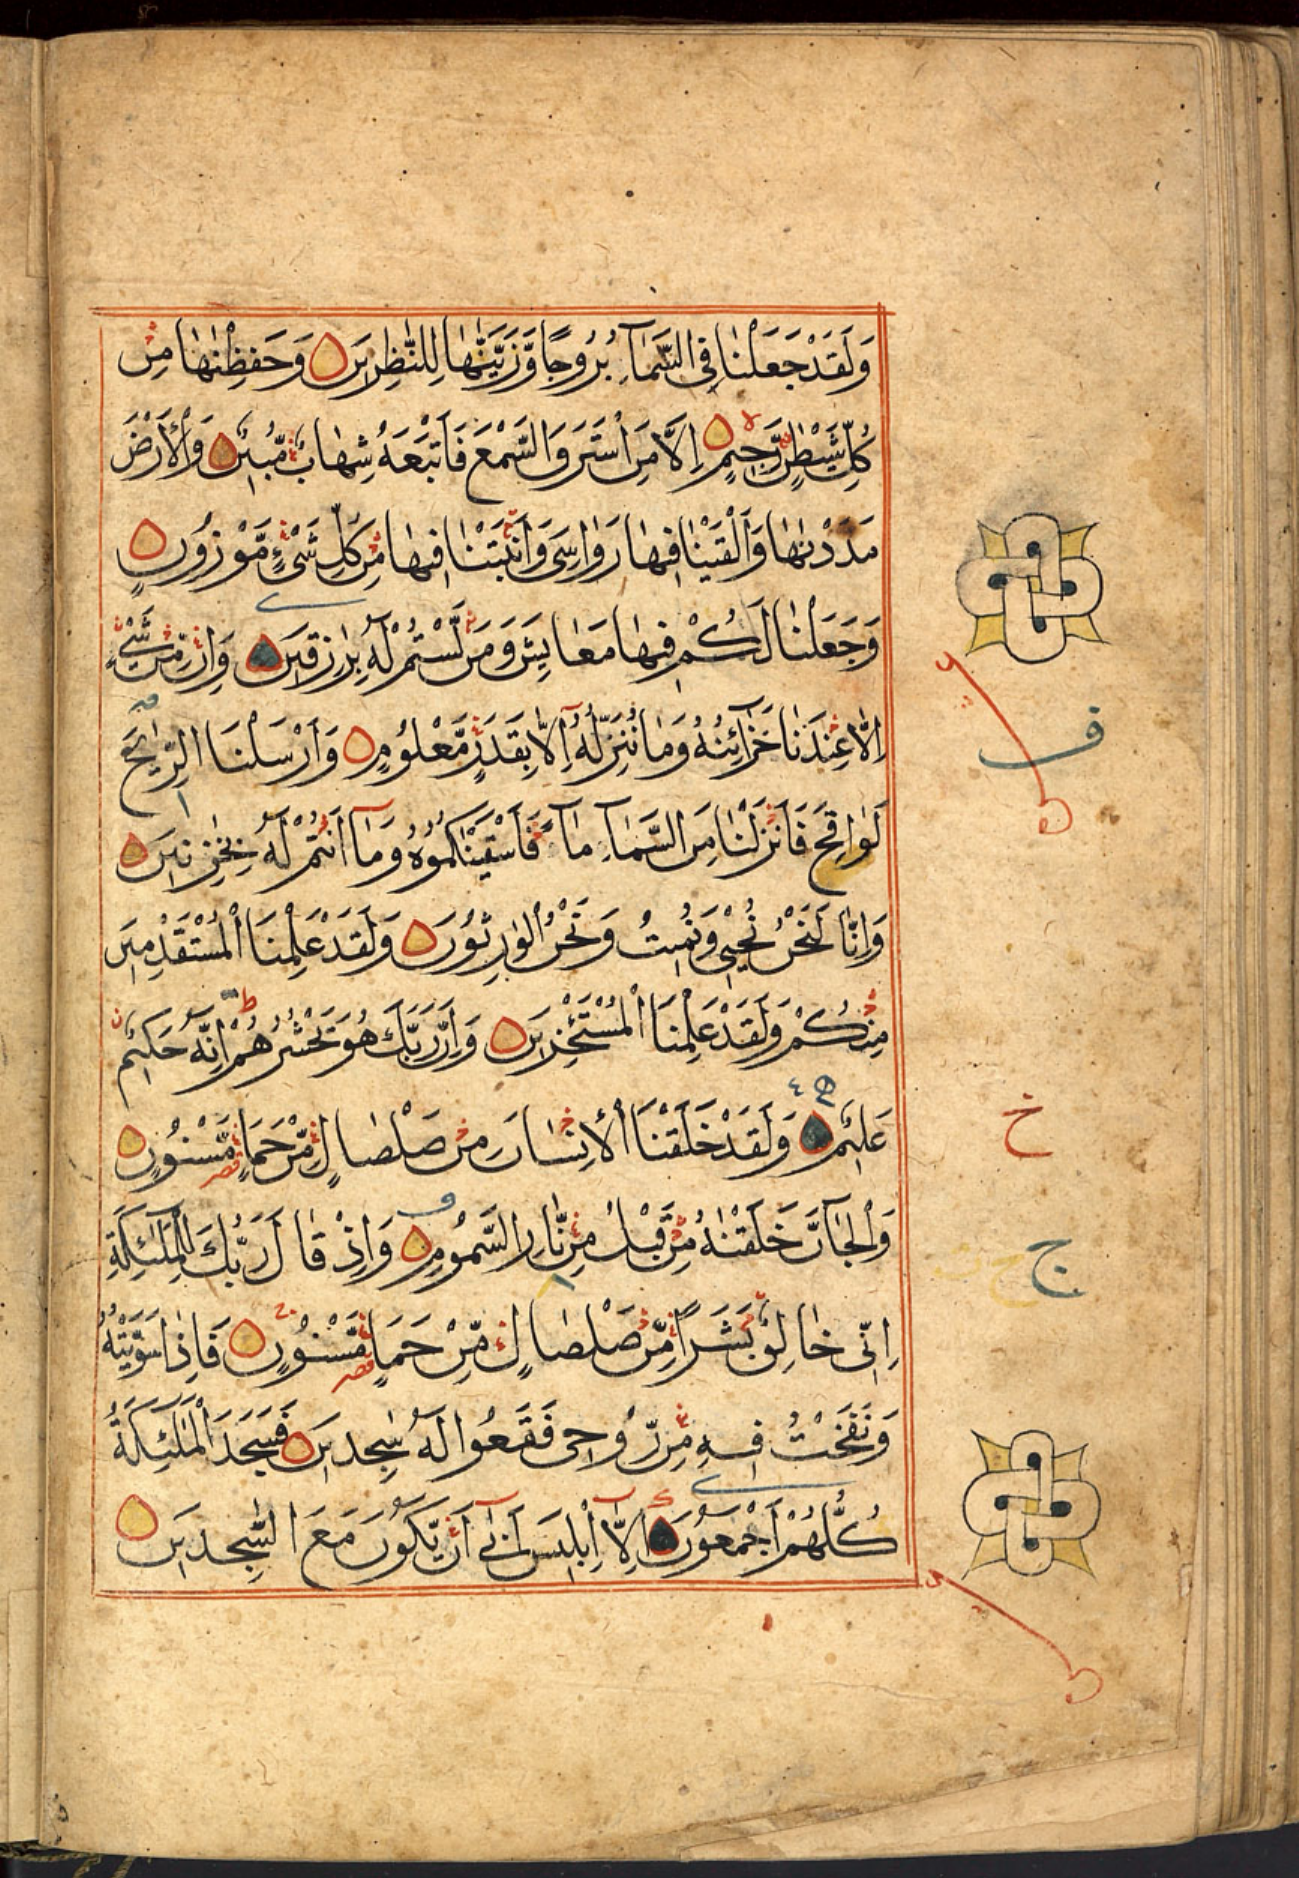 وَلَقَدْ جَعَلْنَا فِي السَّمَآءِ بُرُوجًا وَّزَيَّنّٰهَا لِلنّٰظِرِينَ وَحَفِظْنٰهَا مِنْ
كُلِّ شَيْطٰنٍ رَّجِيمٍ اِلَّا مَنِ اسْتَرَقَ السَّمْعَ فَاَتْبَعَهُ شِهَابٌ مُّبِينٌ وَالْاَرْضَ
مَدَدْنٰهَا وَاَلْقَيْنَا فِيهَا رَوَاسِيَ وَاَنْبَتْنَا فِيهَا مِنْ كُلِّ شَيْءٍ مَّوْزُونٍ
وَجَعَلْنَا لَكُمْ فِيهَا مَعَايِشَ وَمَنْ لَّسْتُمْ لَهُ بِرٰزِقِينَ وَاِنْ مِّنْ شَيْءٍ
اِلَّا عِنْدَنَا خَزَآئِنُهُ وَمَا نُنَزِّلُهُ اِلَّا بِقَدَرٍ مَّعْلُومٍ وَاَرْسَلْنَا الرِّيٰحَ
لَوَاقِحَ فَاَنْزَلْنَا مِنَ السَّمَآءِ مَآءً فَاَسْقَيْنٰكُمُوهُ وَمَآ اَنْتُمْ لَهُ بِخٰزِنِينَ
وَاِنَّا لَنَحْنُ نُحْيِي وَنُمِيتُ وَنَحْنُ الْوٰرِثُونَ وَلَقَدْ عَلِمْنَا الْمُسْتَقْدِمِينَ
مِنْكُمْ وَلَقَدْ عَلِمْنَا الْمُسْتَئْخِرِينَ وَاِنَّ رَبَّكَ هُوَ يَحْشُرُهُمْ اِنَّهُ حَكِيمٌ
عَلِيمٌ وَلَقَدْ خَلَقْنَا الْاِنْسَانَ مِنْ صَلْصَالٍ مِّنْ حَمَاٍ مَّسْنُونٍ
وَالْجَآنَّ خَلَقْنٰهُ مِنْ قَبْلُ مِنْ نَّارِ السَّمُومِ وَاِذْ قَالَ رَبُّكَ لِلْمَلٰئِكَةِ
اِنِّي خَالِقٌ بَشَرًا مِّنْ صَلْصَالٍ مِّنْ حَمَاٍ مَّسْنُونٍ فَاِذَا سَوَّيْتُهُ
وَنَفَخْتُ فِيهِ مِنْ رُّوحِي فَقَعُوا لَهُ سٰجِدِينَ فَسَجَدَ الْمَلٰئِكَةُ
كُلُّهُمْ اَجْمَعُونَ اِلَّا اِبْلِيسَ اَبٰى اَنْ يَّكُونَ مَعَ السّٰجِدِينَ